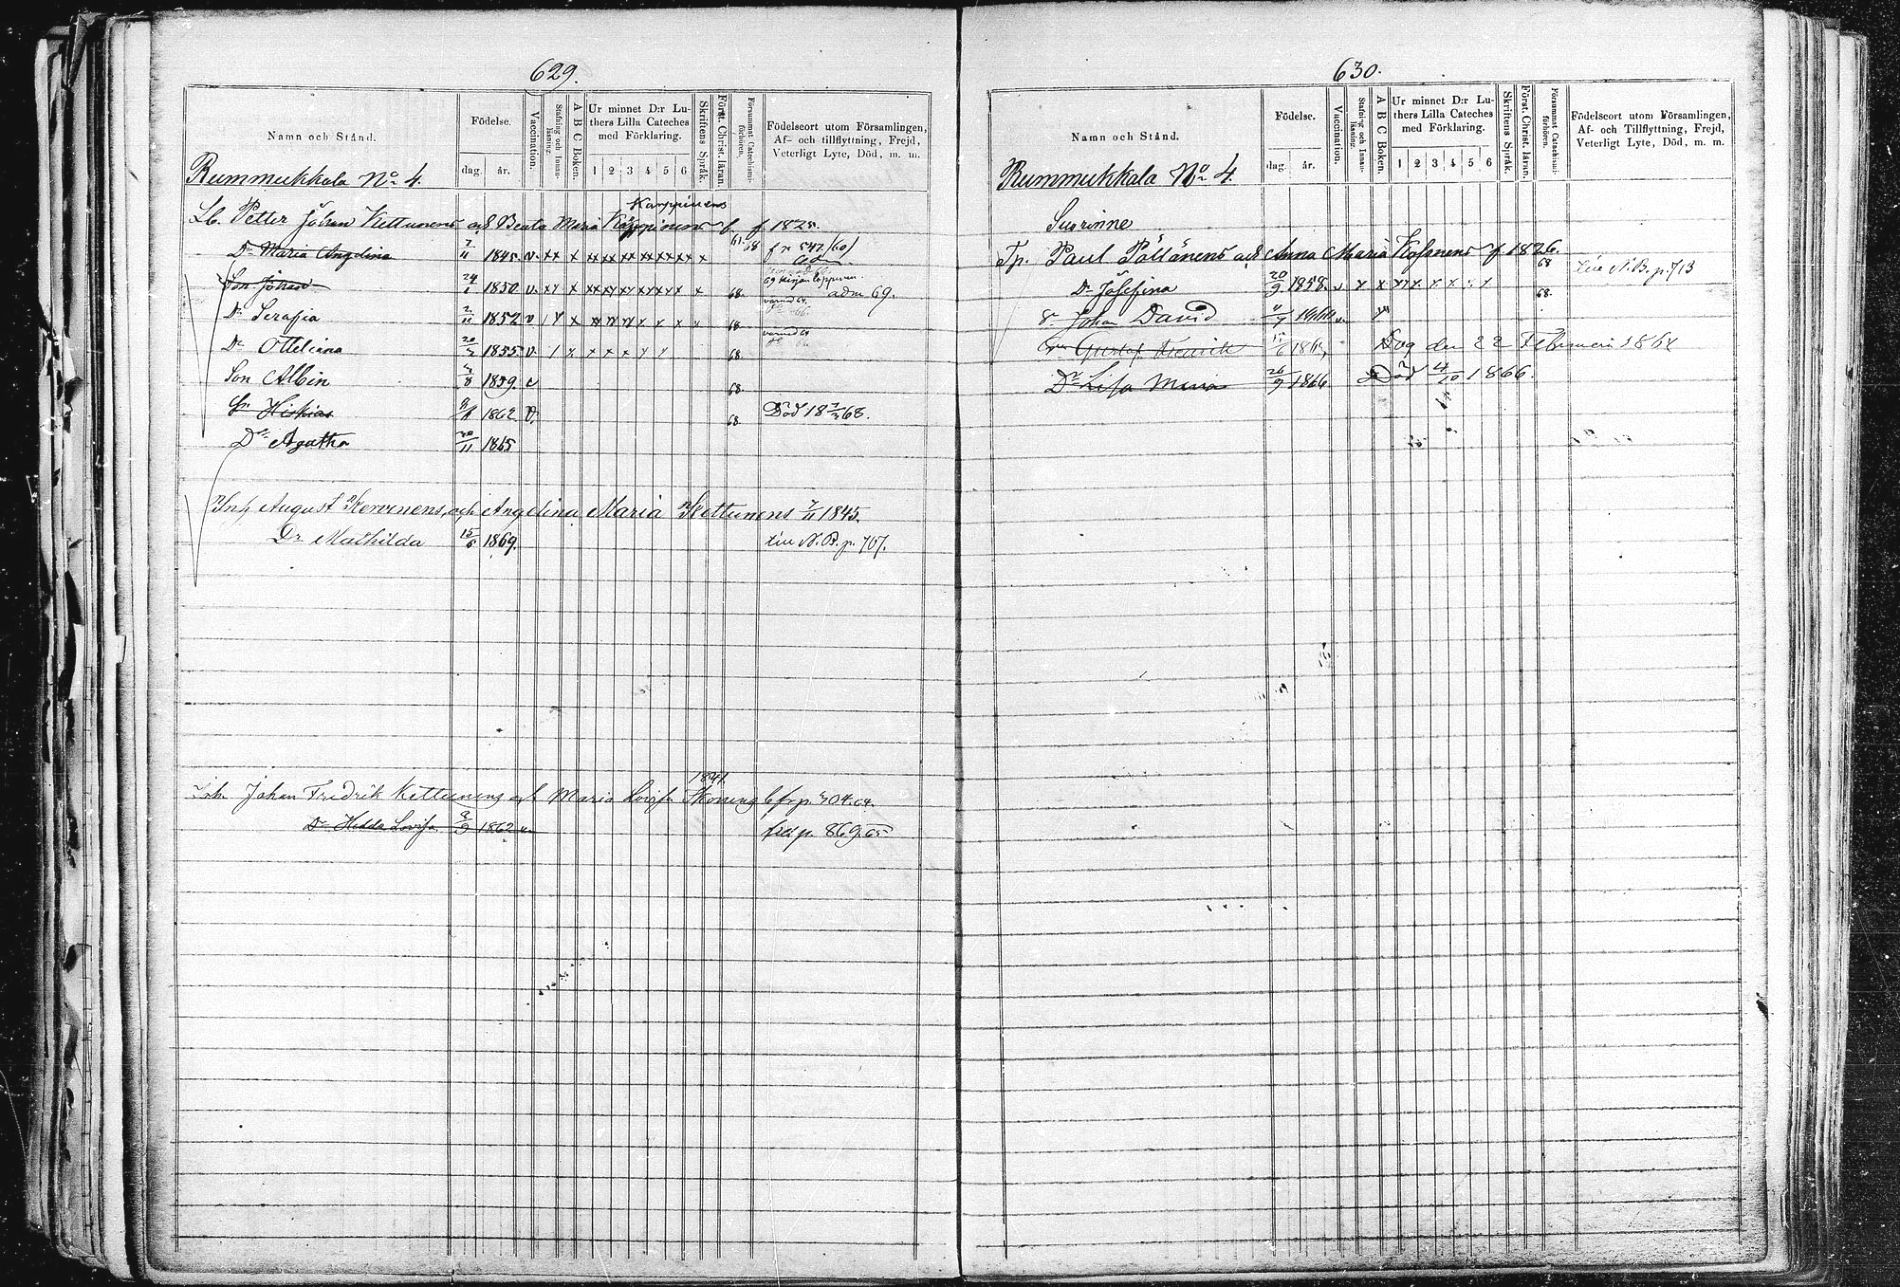 629.
Namn och Stånd.
Födelse.
dag. år.
Vaccination.
Stafning och Innan-läsning.
A B C Boken.
Ur minnet D:r Lu-
thers Lilla Cateches
med Förklaring.
1 2 3 4 5 6
Skriftens Språk.
Först. Christ. läran.
Försummat Catechismi-förhören.
Födelseort utom Församlingen,
Af- och tillflyttning, Frejd,
Veterligt Lyte, Död, m. m.
Rummukkala No 4.
Karppinens
Lb. Petter Johan Kettunens och Beata Maria f. 1825.
Dr Maria Angelina 7/11 1845. v. xx x xx xx xx xx x x x
Son Johan 24/1 1850 v. 68. adm 69.
Dr Serafia 2/11 1852 v 68
Dr Otteliana 20/2 1855 v. 68.
Son Albin 4/8 1859 v 68.
Sn Hiskias 1862 v. 68 Död 18 7/3 68.
Dr Agatha 20/11 1865
Inh August Kervinens, och Angelina Maria Kettunens 7/11 1845.
Dr Mathilda 15/6 1869. till N.B. p. 707.
1841.
Inh. Johan Fredrik Kettunens och Maria Lovisa
Dr Hedda Lovisa 2/9 1862 v. p. 869.65
630.
Namn och Stånd.
Födelse.
dag. år.
Vaccination.
Stafning och Innan-läsning.
A B C Boken.
Ur minnet D:r Lu-
thers Lilla Cateches
med Förklaring.
1 2 3 4 5 6
Skriftens Språk.
Först. Christ. läran.
Försummat Catechismi-förhören.
Födelseort utom Församlingen,
Af- och Tillflyttning, Frejd,
Veterligt Lyte, Död, m. m.
Rummukkala No 4.
Tp. Paul Pöllänens och Anna Maria f 1826. 68 till N.B. p. 713
Dr Josefina 20/9 1858. v 68.
Johan David
Gustaf Fredrik Dog den 22 Februari 1864
Dr Lisa Maria 26/9 1866 Död 4/10 1866.